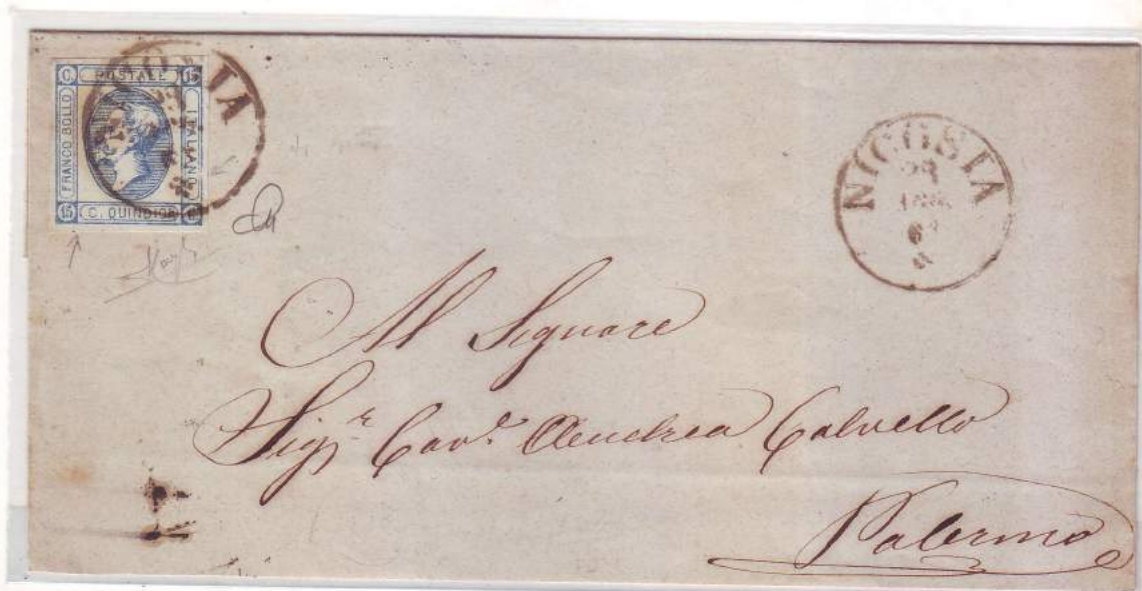 C POSTALE 15
FRANCO BOLLO
ITALIANO
15 C. QUINDICI
NICOSIA
23
Al Signore
Sigr Cavr Andrea Calvello
Palermo